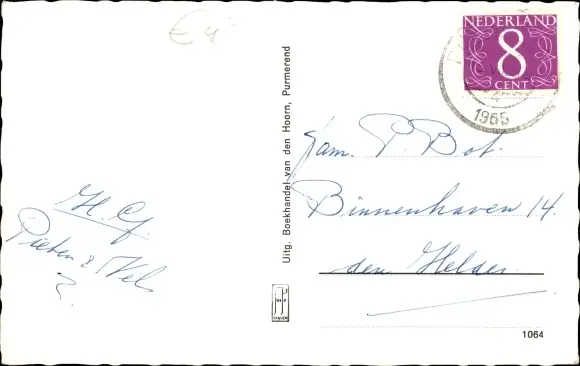 € 4
NEDERLAND
8
CENT
1965
Uitg. Boekhandel van den Hoorn, Purmerend
Fam. P. Bot.
Binnenhaven 14.
den Helder
H. G.
Pieter & Nel
1064